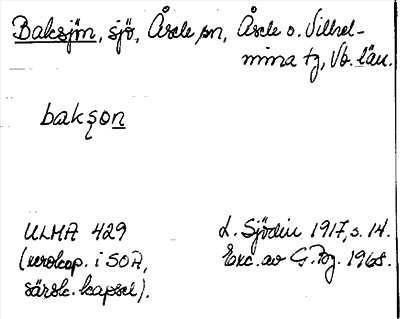 Baksjön, sjö, Åsele sn, Åsele o. Vilhel-
mina tg, Vb. län.
bakșon
ULMA 429
(xerokop. i SOA,
särsk. kapsel).
L. Sjödin 1917, s. 14.
Exc. av G. Pg. 1968.